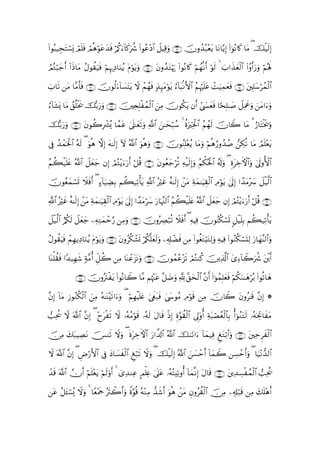 إِلَيْكَ ۖ مَا كَانُوٓا۟ إِيَّانَا يَعْبُدُونَ ﴿٦٣﴾ وَقِيلَ ٱدْعُوا۟ شُرَكَآءَكُمْ فَدَعَوْهُمْ فَلَمْ يَسْتَجِيبُوا۟
لَهُمْ وَرَأَوُا۟ ٱلْعَذَابَ ۚ لَوْ أَنَّهُمْ كَانُوا۟ يَهْتَدُونَ ﴿٦٤﴾ وَيَوْمَ يُنَادِيهِمْ فَيَقُولُ مَاذَآ أَجَبْتُمُ
ٱلْمُرْسَلِينَ ﴿٦٥﴾ فَعَمِيَتْ عَلَيْهِمُ ٱلْأَنۢبَآءُ يَوْمَئِذٍ فَهُمْ لَا يَتَسَآءَلُونَ ﴿٦٦﴾ فَأَمَّا مَن تَابَ
وَءَامَنَ وَعَمِلَ صَٰلِحًا فَعَسَىٰٓ أَن يَكُونَ مِنَ ٱلْمُفْلِحِينَ ﴿٦٧﴾ وَرَبُّكَ يَخْلُقُ مَا يَشَآءُ
وَيَخْتَارُ ۗ مَا كَانَ لَهُمُ ٱلْخِيَرَةُ ۚ سُبْحَٰنَ ٱللَّهِ وَتَعَٰلَىٰ عَمَّا يُشْرِكُونَ ﴿٦٨﴾ وَرَبُّكَ
يَعْلَمُ مَا تُكِنُّ صُدُورُهُمْ وَمَا يُعْلِنُونَ ﴿٦٩﴾ وَهُوَ ٱللَّهُ لَآ إِلَٰهَ إِلَّا هُوَ ۖ لَهُ ٱلْحَمْدُ فِى
ٱلْأُولَىٰ وَٱلْءَاخِرَةِ ۖ وَلَهُ ٱلْحُكْمُ وَإِلَيْهِ تُرْجَعُونَ ﴿٧٠﴾ قُلْ أَرَءَيْتُمْ إِن جَعَلَ ٱللَّهُ عَلَيْكُمُ
ٱلَّيْلَ سَرْمَدًا إِلَىٰ يَوْمِ ٱلْقِيَٰمَةِ مَنْ إِلَٰهٌ غَيْرُ ٱللَّهِ يَأْتِيكُم بِضِيَآءٍ ۖ أَفَلَا تَسْمَعُونَ ﴿٧١﴾
قُلْ أَرَءَيْتُمْ إِن جَعَلَ ٱللَّهُ عَلَيْكُمُ ٱلنَّهَارَ سَرْمَدًا إِلَىٰ يَوْمِ ٱلْقِيَٰمَةِ مَنْ إِلَٰهٌ غَيْرُ ٱللَّهِ
يَأْتِيكُم بِلَيْلٍ تَسْكُنُونَ فِيهِ ۖ أَفَلَا تُبْصِرُونَ ﴿٧٢﴾ وَمِن رَّحْمَتِهِۦ جَعَلَ لَكُمُ ٱلَّيْلَ
وَٱلنَّهَارَ لِتَسْكُنُوا۟ فِيهِ وَلِتَبْتَغُوا۟ مِن فَضْلِهِۦ وَلَعَلَّكُمْ تَشْكُرُونَ ﴿٧٣﴾ وَيَوْمَ يُنَادِيهِمْ فَيَقُولُ
أَيْنَ شُرَكَآءِىَ ٱلَّذِينَ كُنتُمْ تَزْعُمُونَ ﴿٧٤﴾ وَنَزَعْنَا مِن كُلِّ أُمَّةٍ شَهِيدًا فَقُلْنَا
هَاتُوا۟ بُرْهَٰنَكُمْ فَعَلِمُوٓا۟ أَنَّ ٱلْحَقَّ لِلَّهِ وَضَلَّ عَنْهُم مَّا كَانُوا۟ يَفْتَرُونَ ﴿٧٥﴾
۞ إِنَّ قَٰرُونَ كَانَ مِن قَوْمِ مُوسَىٰ فَبَغَىٰ عَلَيْهِمْ ۖ وَءَاتَيْنَٰهُ مِنَ ٱلْكُنُوزِ مَآ إِنَّ
مَفَاتِحَهُۥ لَتَنُوٓأُ بِٱلْعُصْبَةِ أُو۟لِى ٱلْقُوَّةِ إِذْ قَالَ لَهُۥ قَوْمُهُۥ لَا تَفْرَحْ ۖ إِنَّ ٱللَّهَ لَا يُحِبُّ
ٱلْفَرِحِينَ ﴿٧٦﴾ وَٱبْتَغِ فِيمَآ ءَاتَىٰكَ ٱللَّهُ ٱلدَّارَ ٱلْءَاخِرَةَ ۖ وَلَا تَنسَ نَصِيبَكَ مِنَ
ٱلدُّنْيَا ۖ وَأَحْسِن كَمَآ أَحْسَنَ ٱللَّهُ إِلَيْكَ ۖ وَلَا تَبْغِ ٱلْفَسَادَ فِى ٱلْأَرْضِ ۖ إِنَّ ٱللَّهَ لَا
يُحِبُّ ٱلْمُفْسِدِينَ ﴿٧٧﴾ قَالَ إِنَّمَآ أُوتِيتُهُۥ عَلَىٰ عِلْمٍ عِندِىٓ ۚ أَوَلَمْ يَعْلَمْ أَنَّ ٱللَّهَ قَدْ
أَهْلَكَ مِن قَبْلِهِۦ مِنَ ٱلْقُرُونِ مَنْ هُوَ أَشَدُّ مِنْهُ قُوَّةً وَأَكْثَرُ جَمْعًا ۚ وَلَا يُسْـَٔلُ عَن